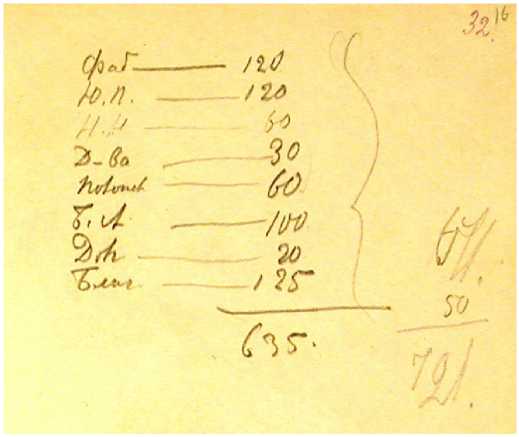 32. 16
Фаб — 120
Ю.П. — 120
Н.Н — 60
Д-ва — 30
— 60
Б.А — 100
Дов — 20
Благ — 125
635.
671.
50
721.